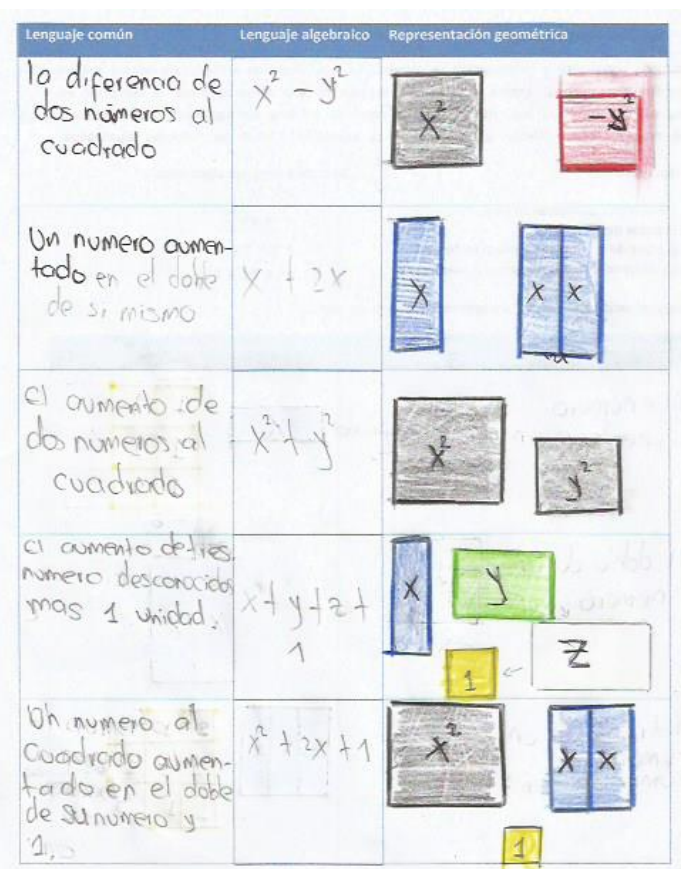 Lenguaje común
Lenguaje algebraico
Representación geométrica
la diferencia de
dos números al
cuadrado
x² − y²
x²
−y²
Un numero aumen-
tado en el doble
de si mismo
x + 2x
x
x x
2x
El aumento de
dos numeros al
cuadrado
x² + y²
x²
y²
El aumento de tres
numero desconocido
mas 1 unidad.
x + y + z +
1
x
y
z
1
Un numero al
Cuadrado aumen-
tado en el doble
de su numero y
1.
x² + 2x + 1
x²
x x
1